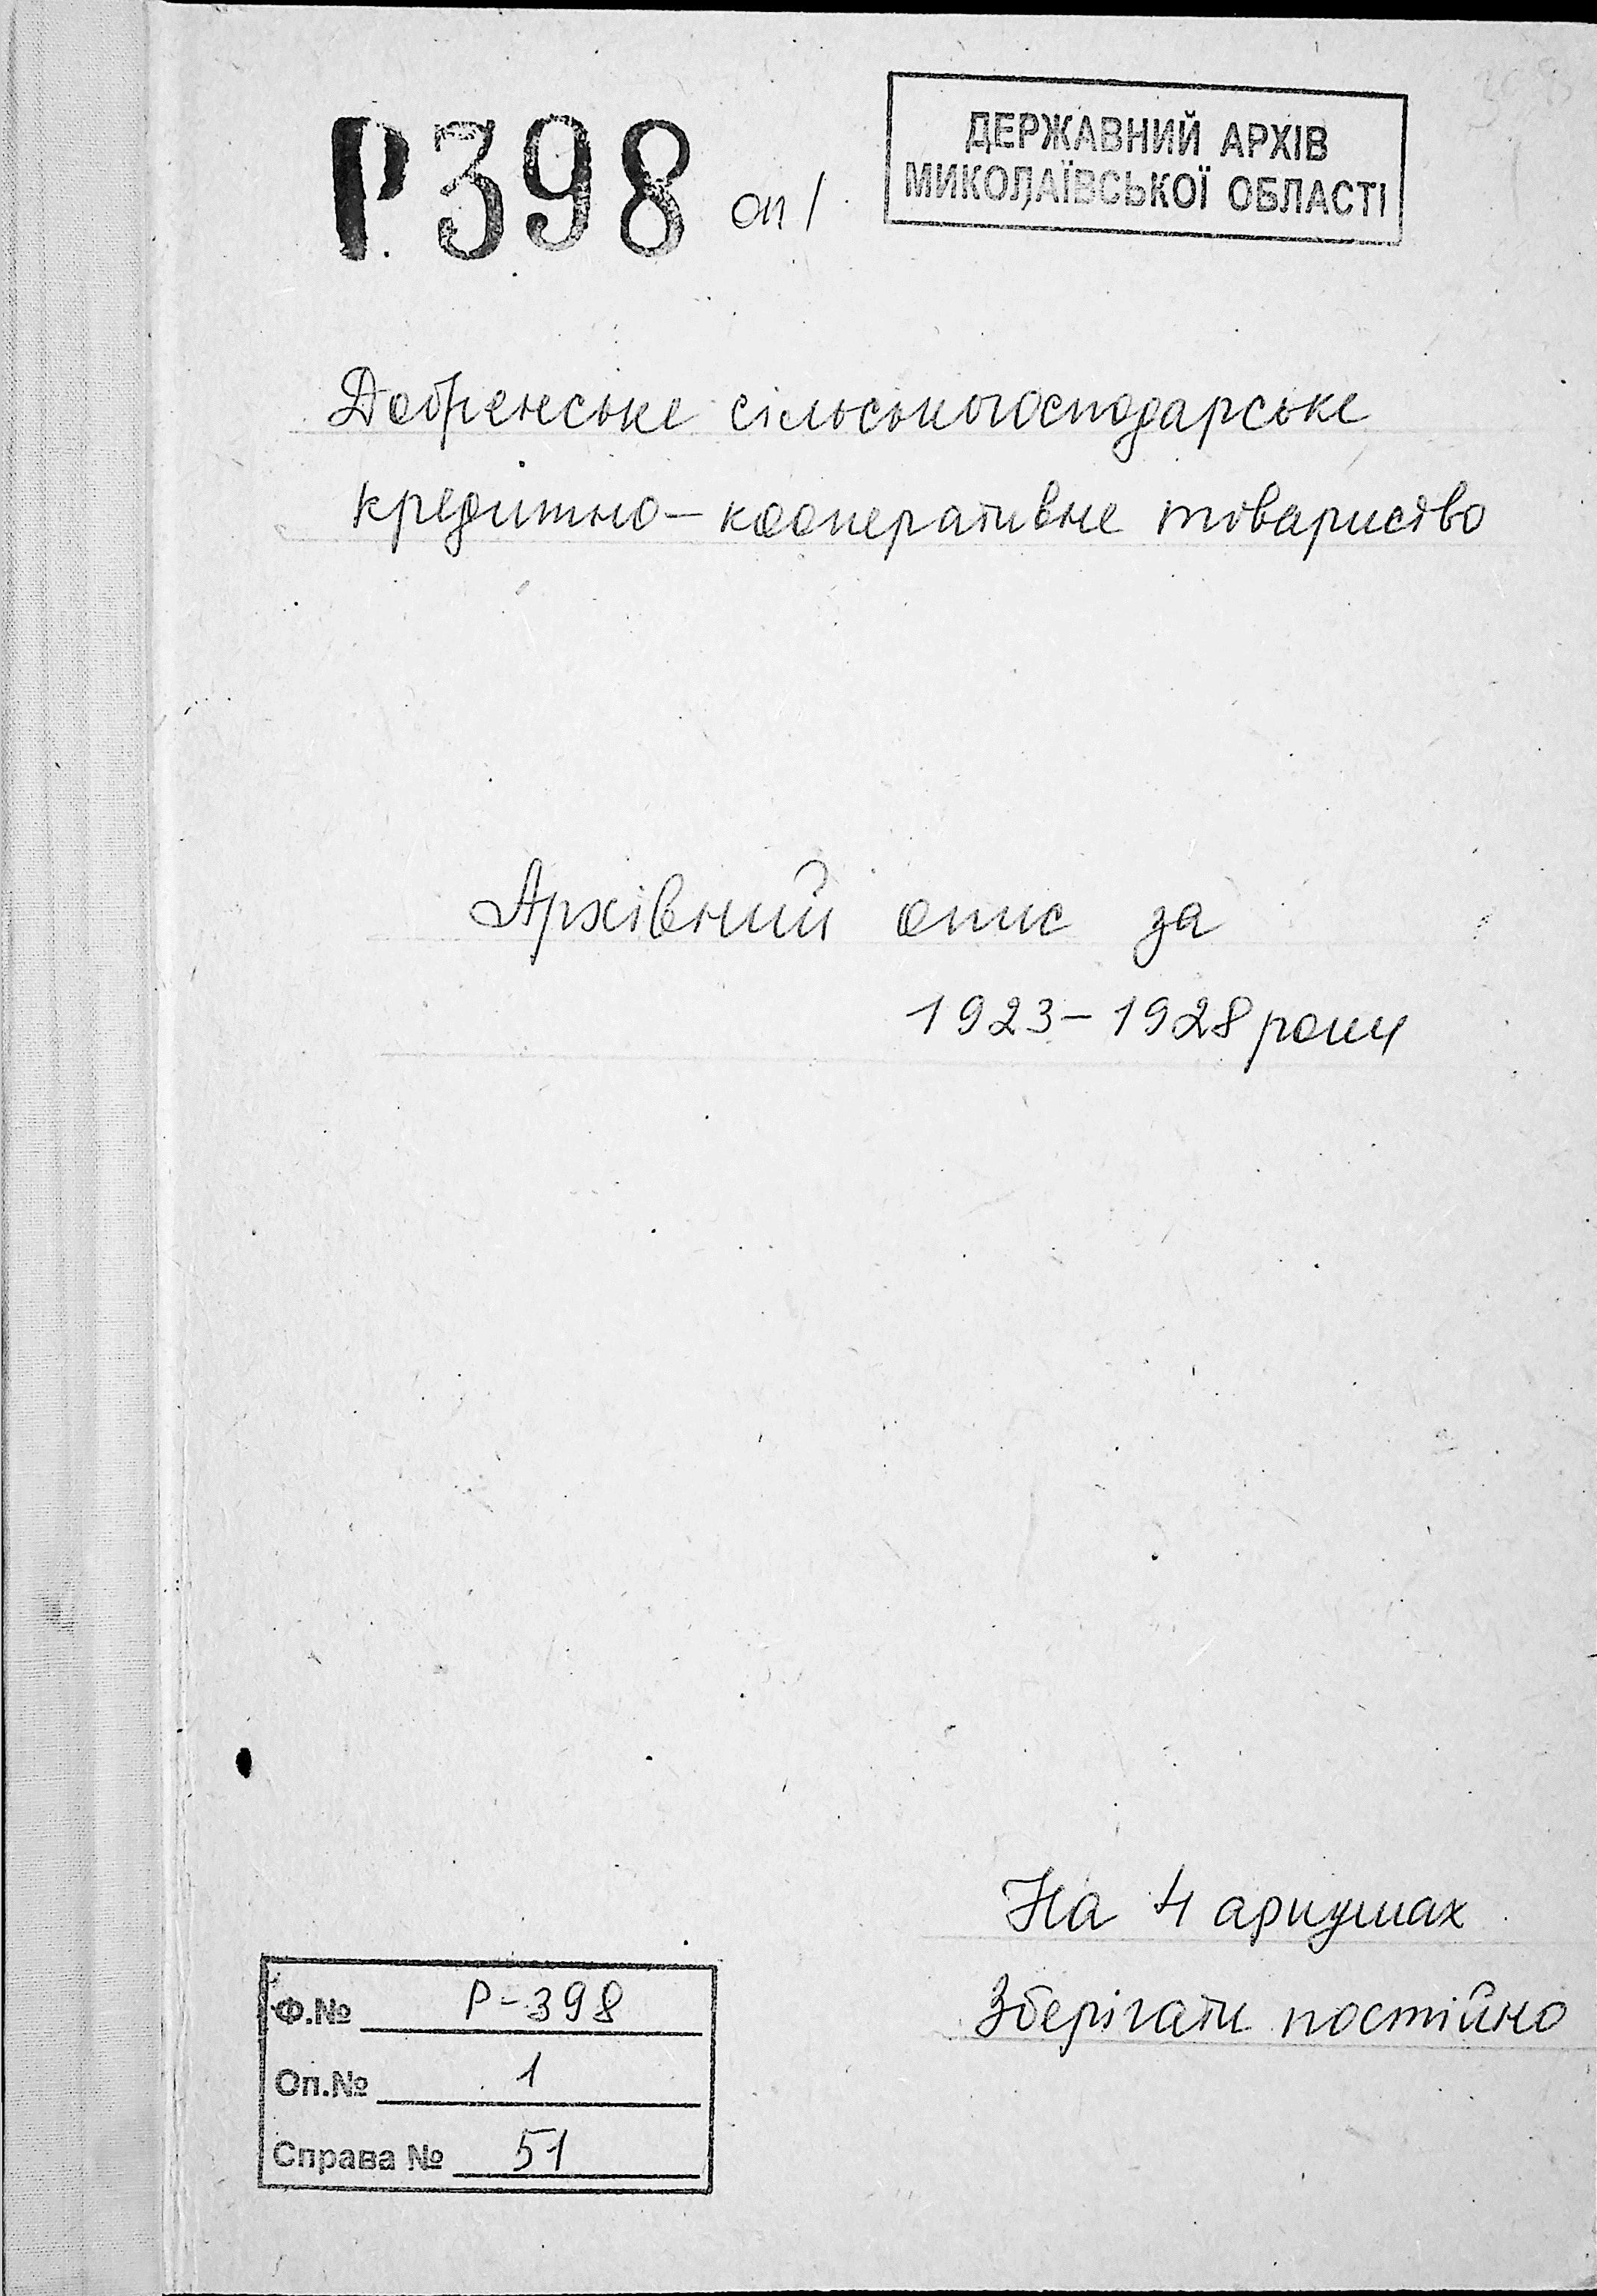 Р398 оп 1
ДЕРЖАВНИЙ АРХІВ
МИКОЛАЇВСЬКОЇ ОБЛАСТІ
Добренське сільськогосподарське
кредитно-кооперативне товариство
Архівний опис за
1923-1928 роки
На 4 аркушах
Зберігати постійно
Ф.№ Р-398
Оп.№ 1
Справа № 51